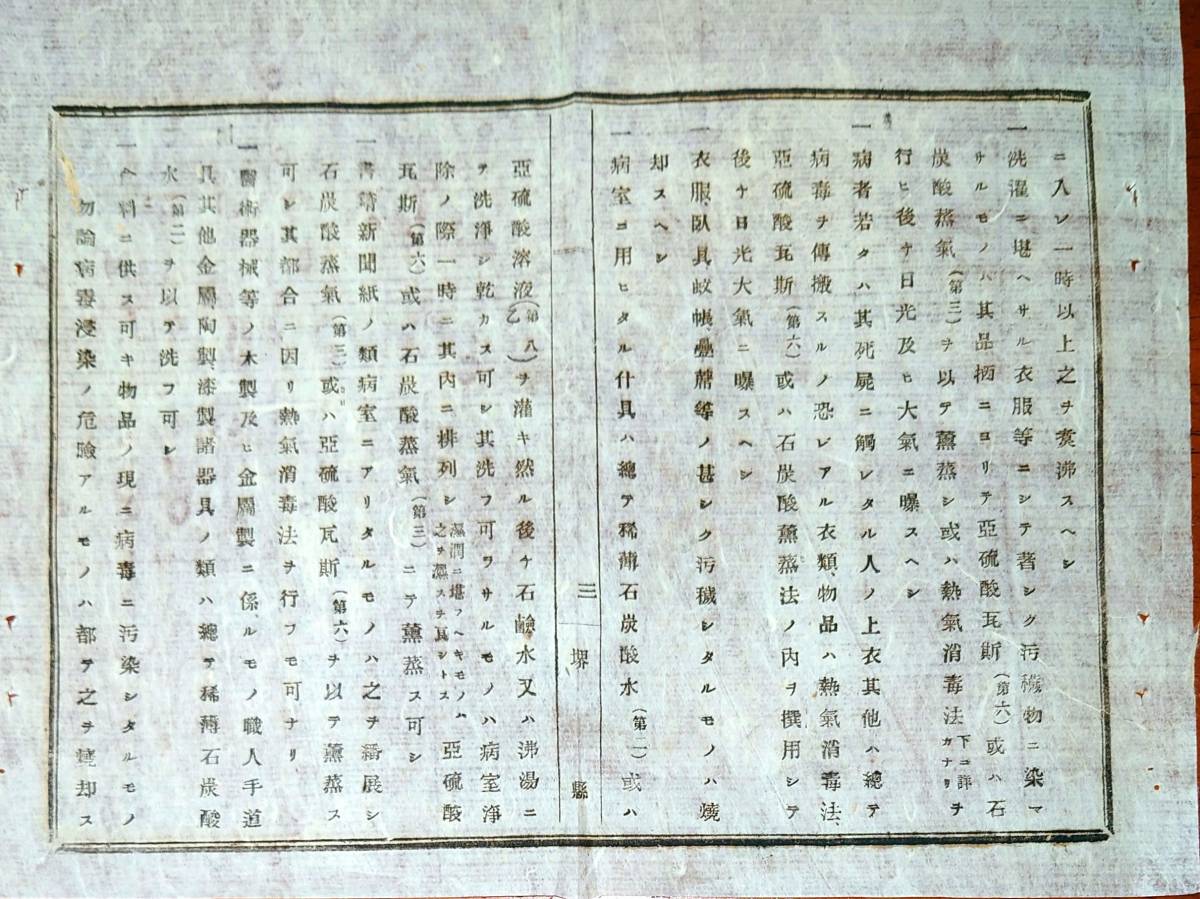 ニ入レ一時以上之ヲ煑沸スヘシ
一洗濯ニ堪ヘサル衣服等ニシテ著シク汚穢物ニ染マ
サルモノハ其品柄ニヨリテ亞硫酸瓦斯(第六)或ハ石
炭酸蒸氣(第三)ヲ以テ薰蒸シ或ハ熱氣消毒法下ニ詳カナリヲ
行ヒ後ケ日光及ヒ大氣ニ曝スヘシ
一病者若クハ其死屍ニ觸レタル人ノ上衣其他ハ總テ
病毒ヲ傳搬スルノ恐レアル衣類、物品ハ熱氣消毒法、
亞硫酸瓦斯(第六)或ハ石炭酸薰蒸法ノ内ヲ撰用シテ
後ケ日光大氣ニ曝スヘシ
一衣服、臥具、蚊帳、疊蓆等ノ甚シク汚穢シタルモノハ燒
却スヘシ
一病室ニ用ヒタル什具ハ總テ稀薄石炭酸水(第二)或ハ
三 堺縣
亞硫酸溶液(第八乙)ヲ灌キ然ル後ケ石鹼水又ハ沸湯ニ
テ洗淨シ乾カス可シ其洗フ可ラサルモノハ病室淨
除ノ際一時ニ其内ニ排列シ濕潤ニ堪フヘキモノハ之ヲ濕スヲ良シトス亞硫酸
瓦斯(第六)或ハ石炭酸蒸氣(第三)ニテ薰蒸ス可シ
一書籍新聞紙ノ類病室ニアリタルモノハ之ヲ繙展シ
石炭酸蒸氣(第三)或ハ亞硫酸瓦斯(第六)ヲ以テ薰蒸ス
可シ其都合ニ因リ熱氣消毒法ヲ行フモ可ナリ
一醫術器械等ノ木製及ヒ金屬製ニ係ルモノ職人手道
具其他金屬、陶製、漆製諸器具ノ類ハ總テ稀薄石炭酸
水(第二)ヲ以テ洗フ可シ
一料ニ供ス可キ物品ノ現ニ病毒ニ汚染シタルモノ
勿論病毒浸染ノ危險アルモノハ都テ之ヲ燒却ス